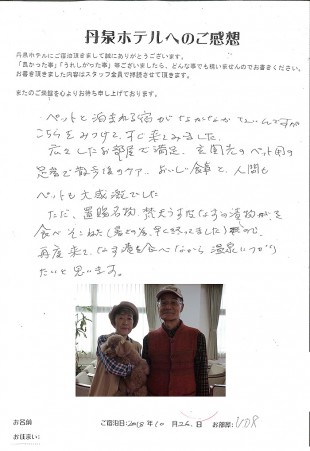 丹泉ホテルへのご感想
丹泉ホテルにご宿泊頂きまして誠にありがとうございます。
「良かった事」「うれしかった事」等ございましたら、どんな事でも構いませんのでお書きください。
お書き頂きました内容はスタッフ全員で拝読させて頂きます。
またのご来館を心よりお待ち申し上げております。
・ペットと泊まれる宿がなかなかないんですが
こちらをみつけて、すぐ来てみました。
広々したお部屋で満足、玄関先のペット用の
足湯で散歩後のケア、おいしい食事と、人間も
ペットも大感激でした
ただ、置賜名物 なすの漬物が
食べそこねた(暑さの為、早く終ってました)ので、
再度来て、なす漬を食べながら温泉につかり
たいと思います。
お名前
ご宿泊日:2018年10月26日
お部屋:108
お住まい: